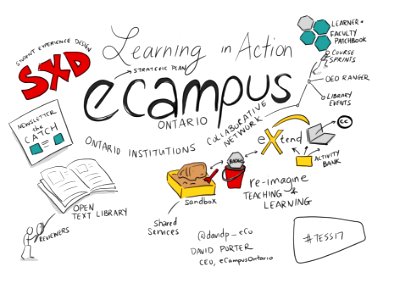 STUDENT EXPERIENCE DESIGN
SXD
Learning in Action
STRATEGIC PLAN
ecampus
ONTARIO
LEARNER +
FACULTY
PATCHBOOK
COURSE
SPRINTS
OED RANGER
LIBRARY
EVENTS
NEWSLETTER
the
CATCH
ONTARIO INSTITUTIONS
COLLABORATIVE
NETWORK
eXtend
cc
ACTIVITY
BANK
sandbox
re-imagine
TEACHING +
LEARNING
OPEN
TEXT LIBRARY
REVIEWERS
Shared
Services
@davidp_eCu
DAVID PORTER
CEO, eCampusOntario
#TESS17